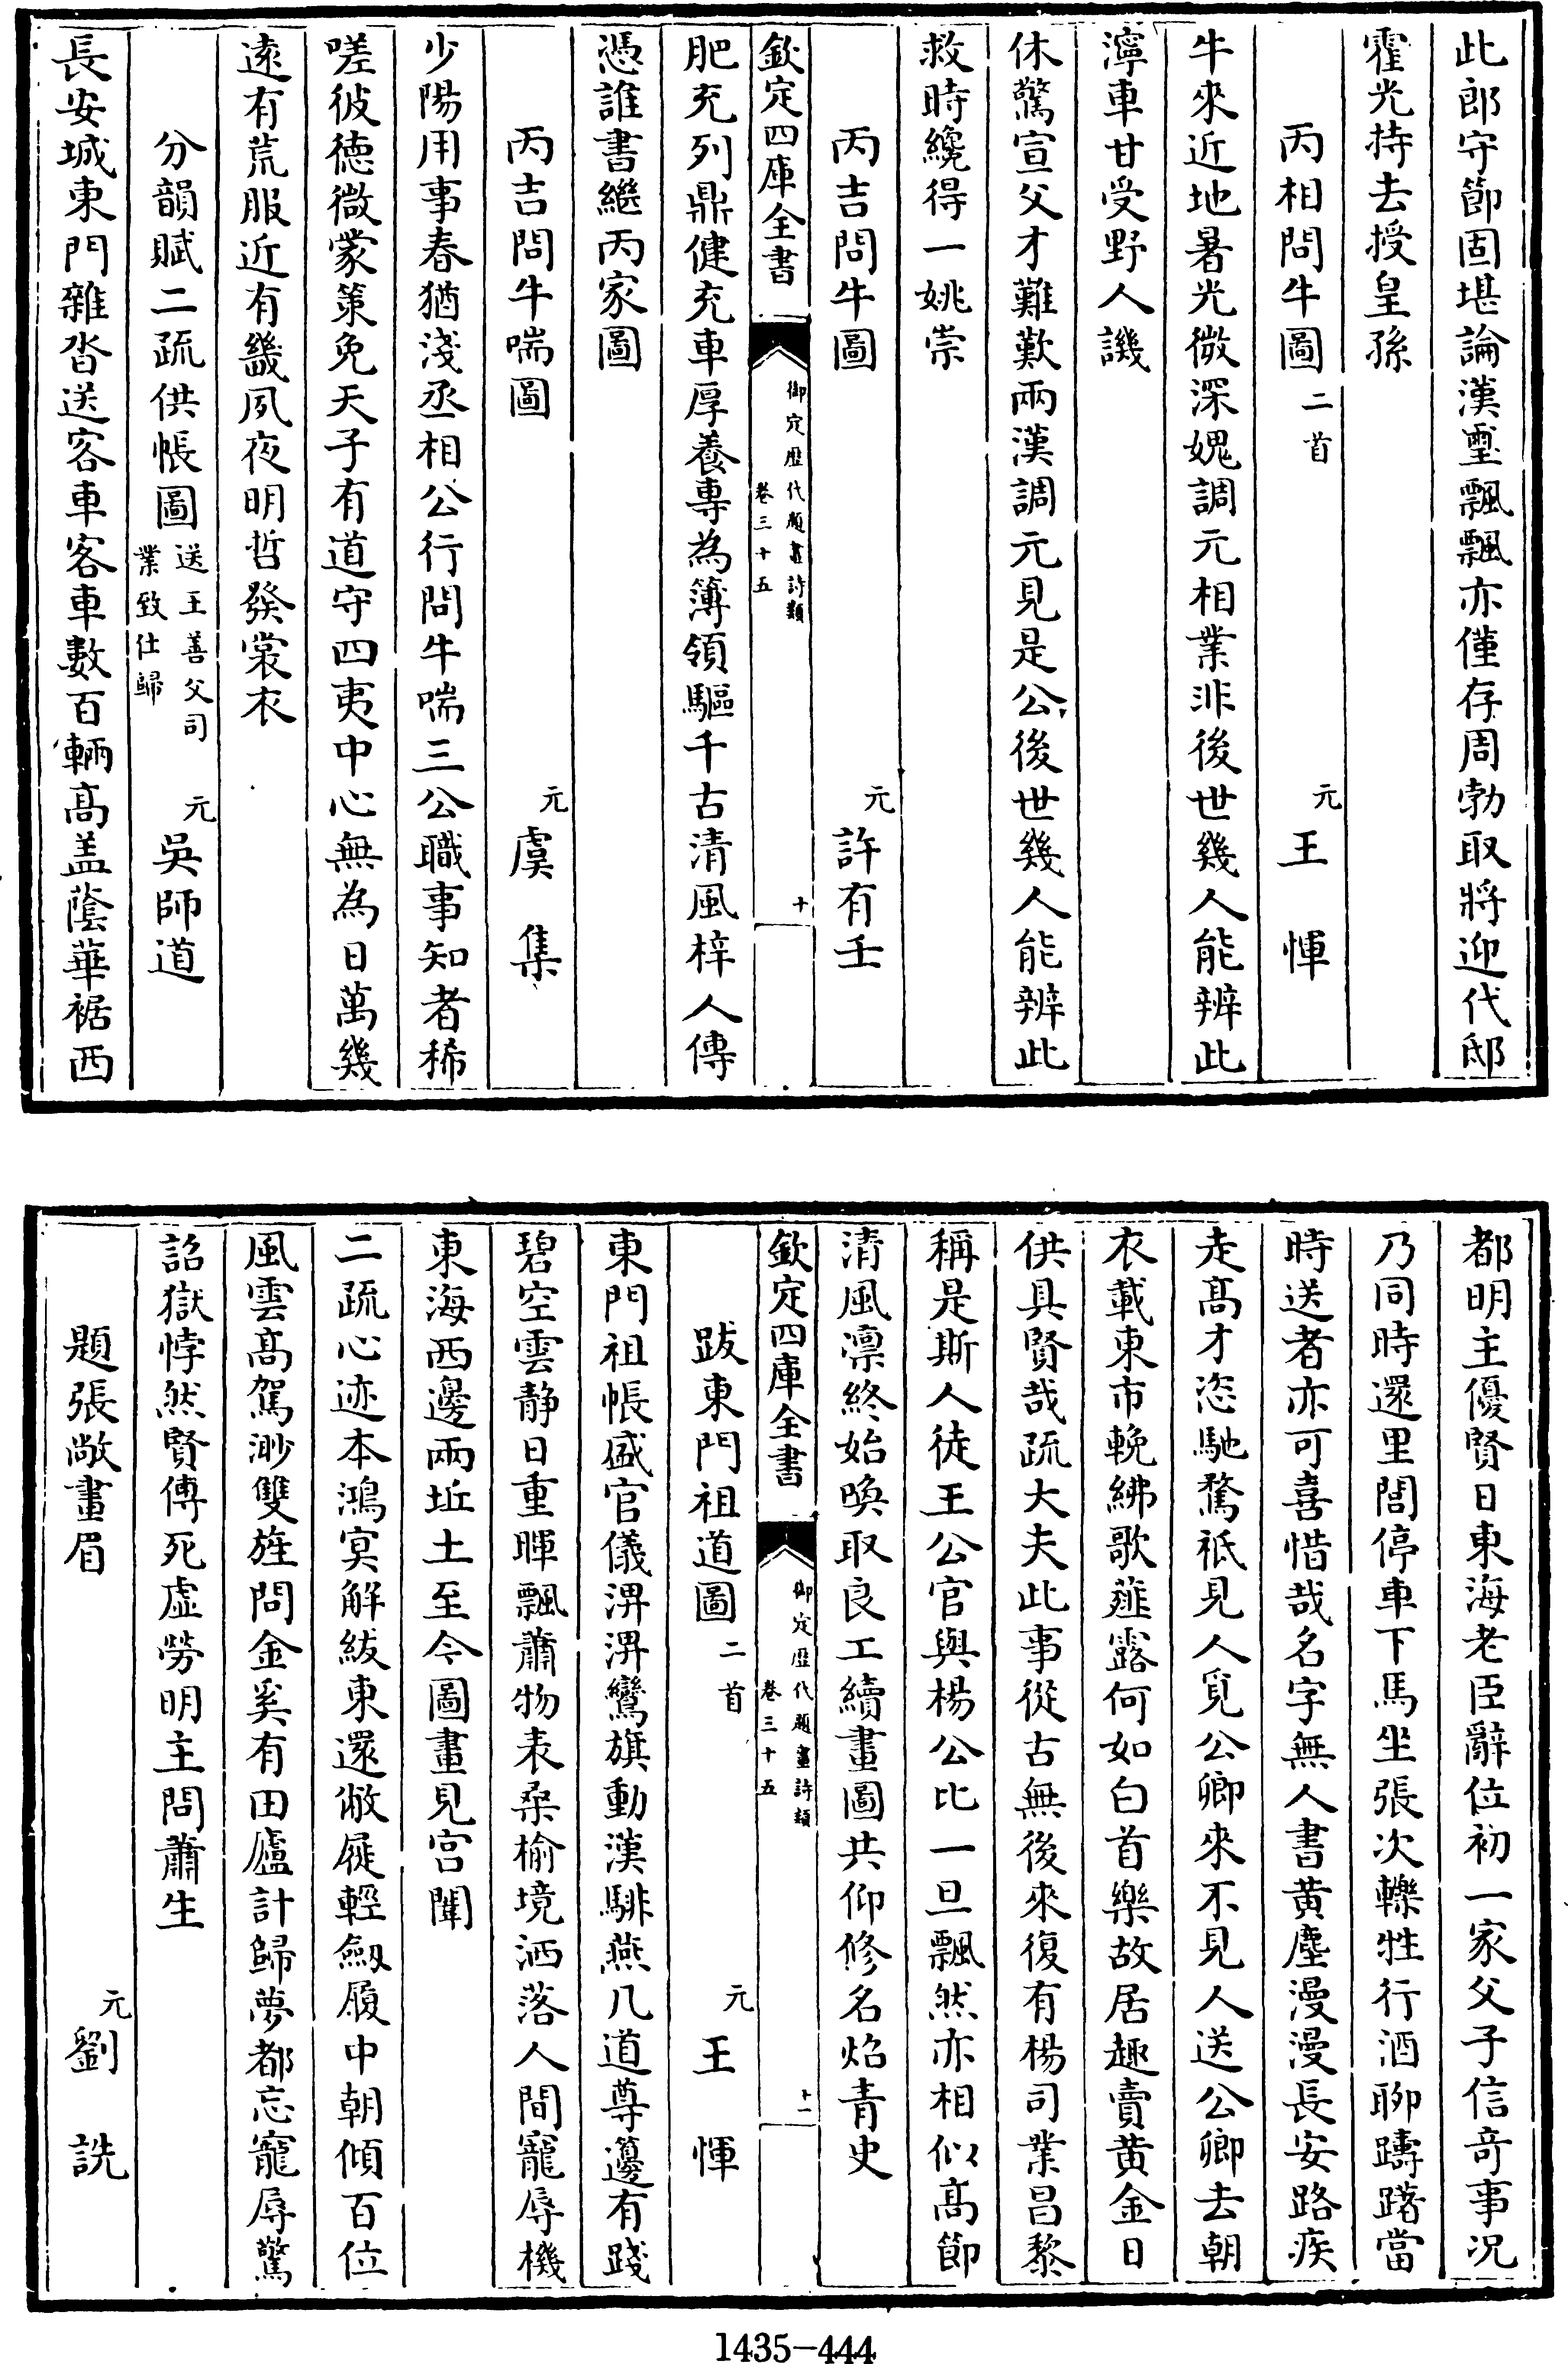 此郎守節固堪論漢璽飄飄亦僅存周勃取將迎代邸
霍光持去授皇孫
丙相問牛圖二首　元王惲
牛來近地暑光微深媿調元相業非後世幾人能辨此
濘車甘受野人譏
休驚宣父才難歎兩漢調元見是公後世幾人能辨此
救時纔得一姚崇
丙吉問牛圖　元許有壬
欽定四庫全書　御定歴代題畫詩類卷三十五　十
肥充列鼎健充車厚養專為簿領驅千古清風梓人傳
憑誰書繼丙家圖
丙吉問牛喘圖　元虞集
少陽用事春猶淺丞相公行問牛喘三公職事知者稀
嗟彼德微蒙策免天子有道守四夷中心無為日萬幾
逺有荒服近有畿夙夜明哲發裳衣
分韻賦二疏供帳圖送王善父司業致仕歸　元吳師道
長安城東門雜沓送客車客車數百輛髙盖蔭華裾西
都明主優賢日東海老臣辭位初一家父子信竒事况
乃同時還里閭停車下馬坐張次轢牲行酒聊躊躇當
時送者亦可喜惜哉名字無人書黄塵漫漫長安路疾
走髙才恣馳騖祗見人覓公卿來不見人送公卿去朝
衣載東市輓紼歌薤露何如白首樂故居趣賣黄金日
供具賢哉疏大夫此事從古無後來復有楊司業昌黎
稱是斯人徒王公官與楊公比一旦飄然亦相似髙節
清風凛終始喚取良工續畫圖共仰修名焰青史
欽定四庫全書　御定歴代題畫詩類卷三十五　十一
跋東門祖道圖二首　元王惲
東門祖帳盛官儀淠淠鸞旗動漢騑燕几道尊籩有踐
碧空雲静日重暉飄蕭物表桑榆境洒落人間寵辱機
東海西邊兩坵土至今圖畫見宫闈
二疏心迹本鴻冥解紱東還敝屣輕劒履中朝傾百位
風雲髙駕渺雙旌問金奚有田廬計歸夢都忘寵辱驚
詔獄悖然賢傅死虚勞明主問蕭生
題張敞畫眉　元劉詵
1435-444